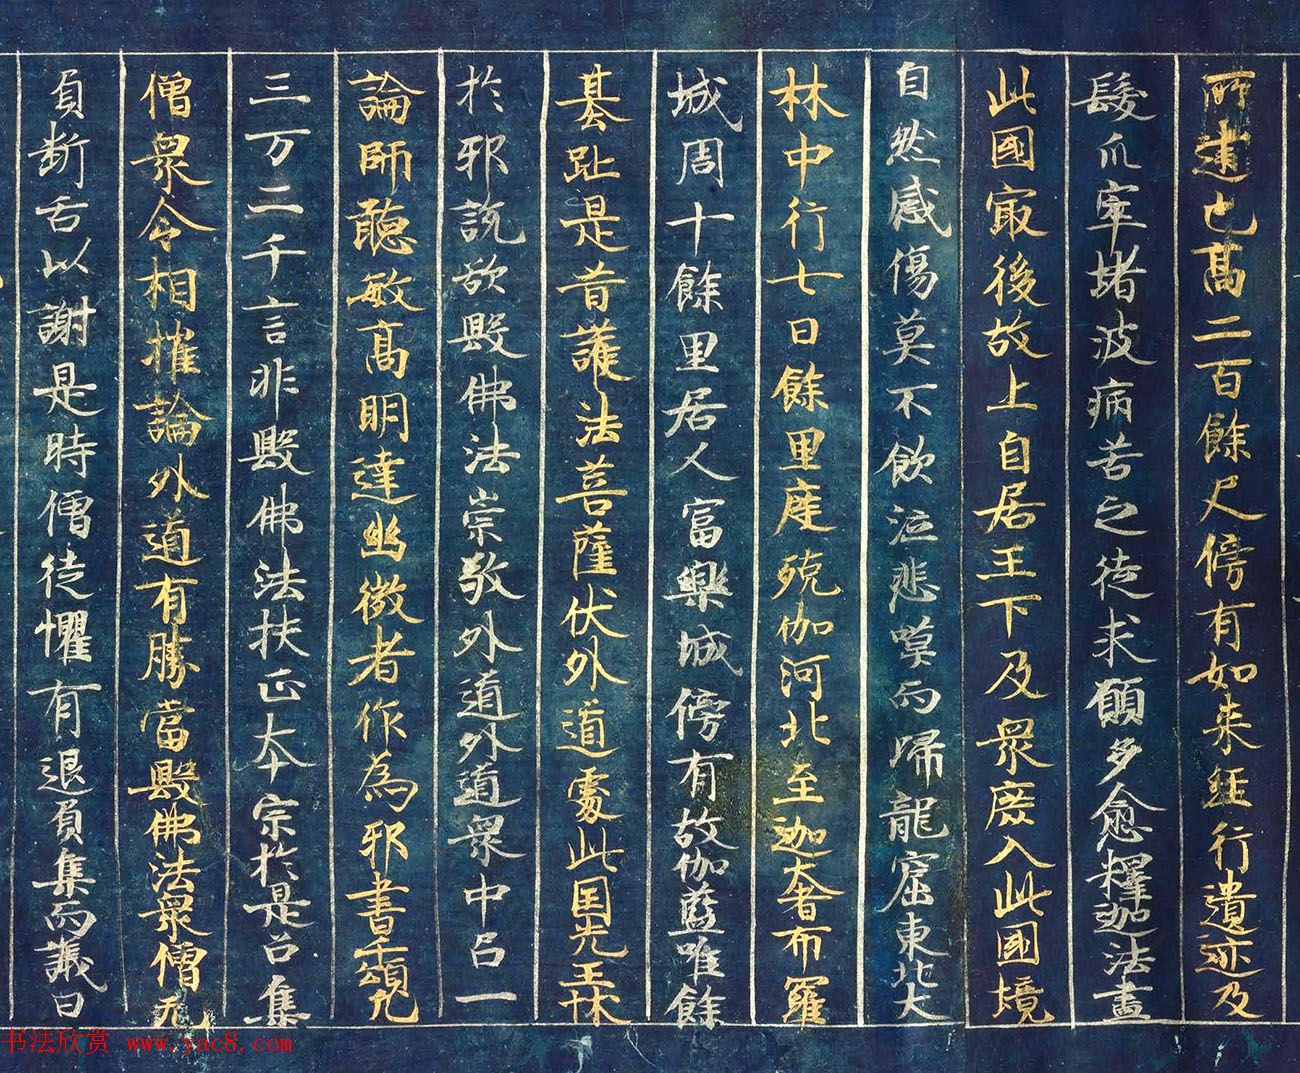 所建也高二百餘尺傍有如来經行遺迹及
髮爪窣堵波病苦之徒求願多愈釋迦法盡
此國㝡後故上自居王下及衆庶入此國境
自然感傷莫不飲泣悲嘆而歸龍窟東北大
林中行七日餘里度殑伽河北至迦奢布羅
城周十餘里居人富樂城傍有故伽藍唯餘
基趾是昔護法菩薩伏外道處此国先王扶
於邪説欲毀佛法崇敬外道外道衆中召一
論師聰敏高明達幽微者作為邪書千頌凡
三万二千言非毀佛法扶正本宗於是召集
僧衆令相攉論外道有勝當毀佛法衆僧无
負斷舌以謝是時僧徒懼有退負集而議曰
书法欣赏 www.yac8.com